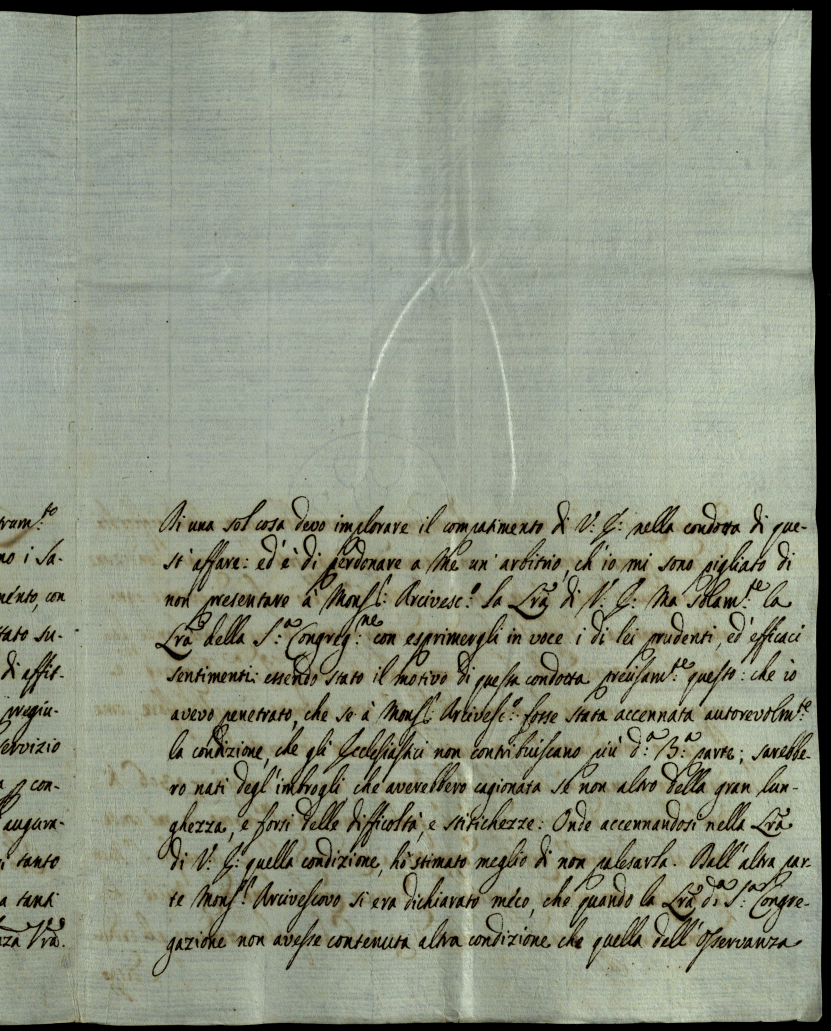 trum:to
no i sa-
mento, con
tato su-
di affit-
pregiu-
servizio
a p con-
augura-
i tanto
a tanti
nza Vra.
Di una sol cosa devo implorare il compatimento di V: E: nella condotta di que-
st'affare: ed'è di perdonare a Me un'arbitrio, ch'io mi sono pigliato di
non presentare à Monsr: Arcivesc:o la Lra di V: E: Ma solam:te la
Lra della S:a Congreg:ne con esprimergli in voce i di lei prudenti, ed'efficaci
sentimenti: essendo stato il motivo di questa condotta precisam:te questo: che io
avevo penetrato, che se à Monsr: Arcivesc:o fosse stata accennata autorevolm:te
la condizione, che gli Ecclesiastici non contribuiscano più d:a 3:a parte; sarebbe-
ro nati degl'imbrogli che averebbero cagionata se non altro della gran lun-
ghezza, e forsi delle difficoltà, e stitichezze: Onde accennandosi nella Lra
di V: E: quella condizione, hò stimato meglio di non palesarla. Dall'altra par-
te Monsr: Arcivescovo si era dichiarato méco, che quando la Lra d:a S:a Congre-
gazione non avesse contenuta altra condizione che quella dell'osservanza